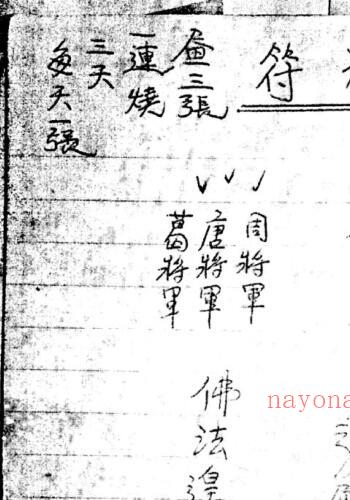 符
畫三張
一連燒
三天
每天一張
周將軍
唐將軍
葛將軍
佛法
nayona